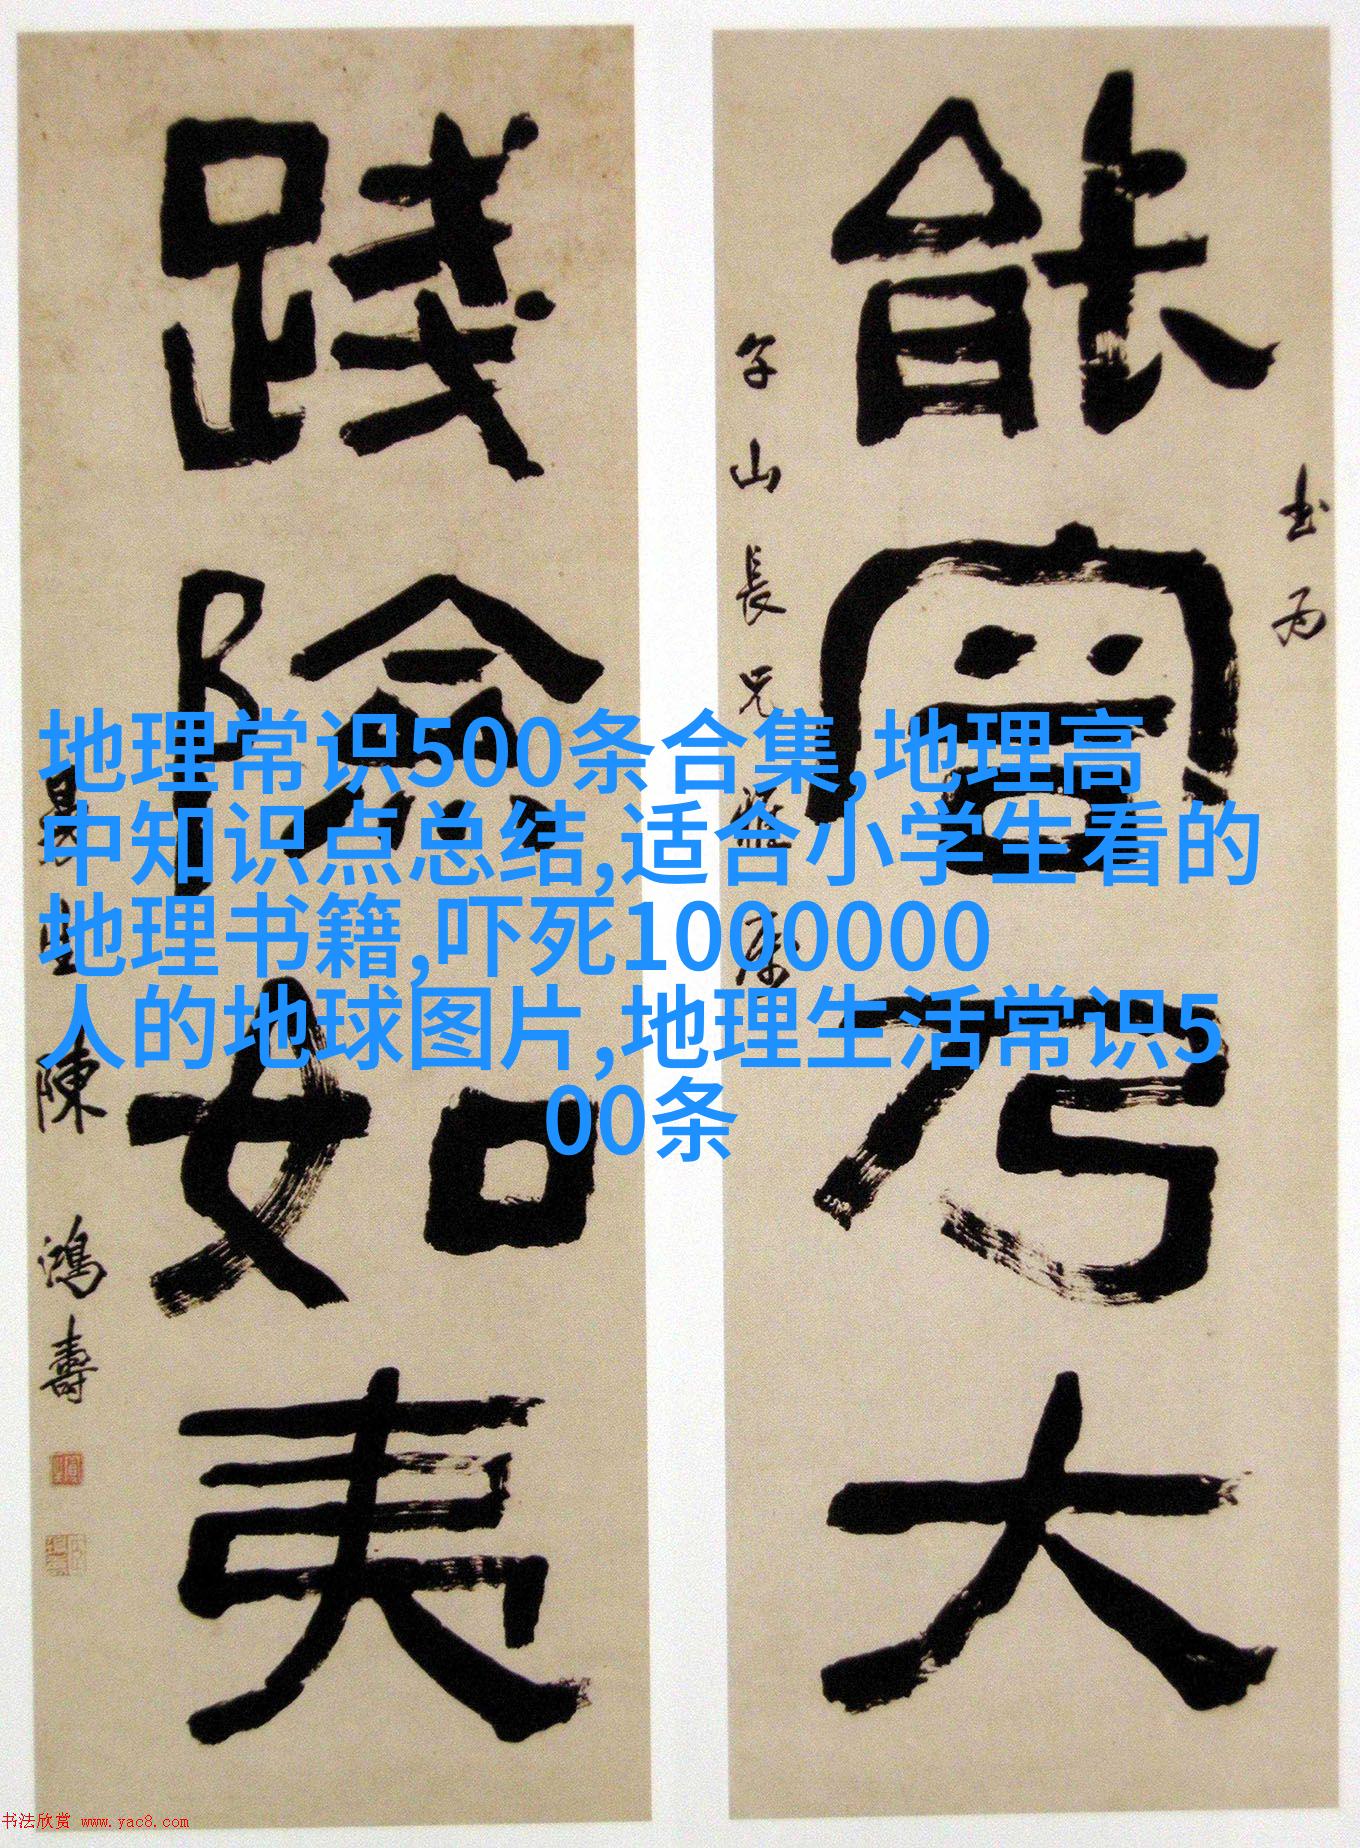 書為
能容乃大
子山長兄
踐險如夷
曼生陳鴻壽
地理常识500条合集,地理高
中知识点总结,适合小学生看的
地理书籍,吓死1000000
人的地球图片,地理生活常识5
00条
书法欣赏 www.yac8.com